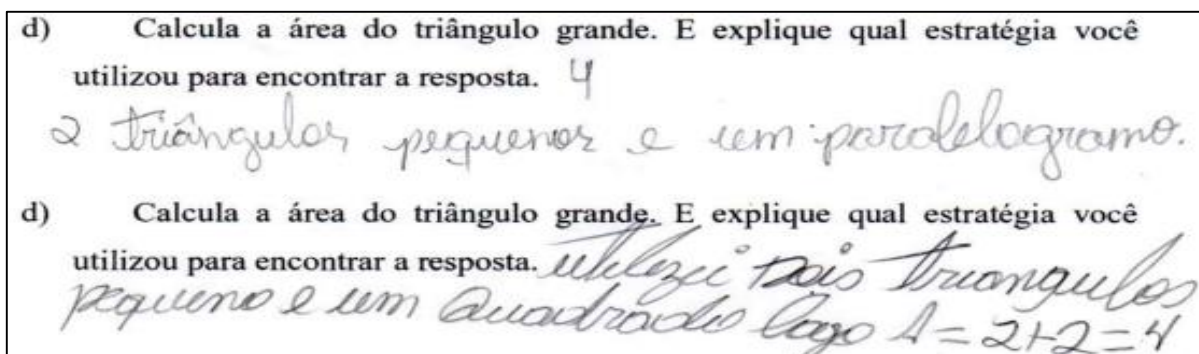 d) Calcula a área do triângulo grande. E explique qual estratégia você
utilizou para encontrar a resposta. 4
2 triângulos pequenos e um paralelogramo.
d) Calcula a área do triângulo grande. E explique qual estratégia você
utilizou para encontrar a resposta. utilizei Dois triangulos
pequeno e um Quadrado logo A = 2+2=4